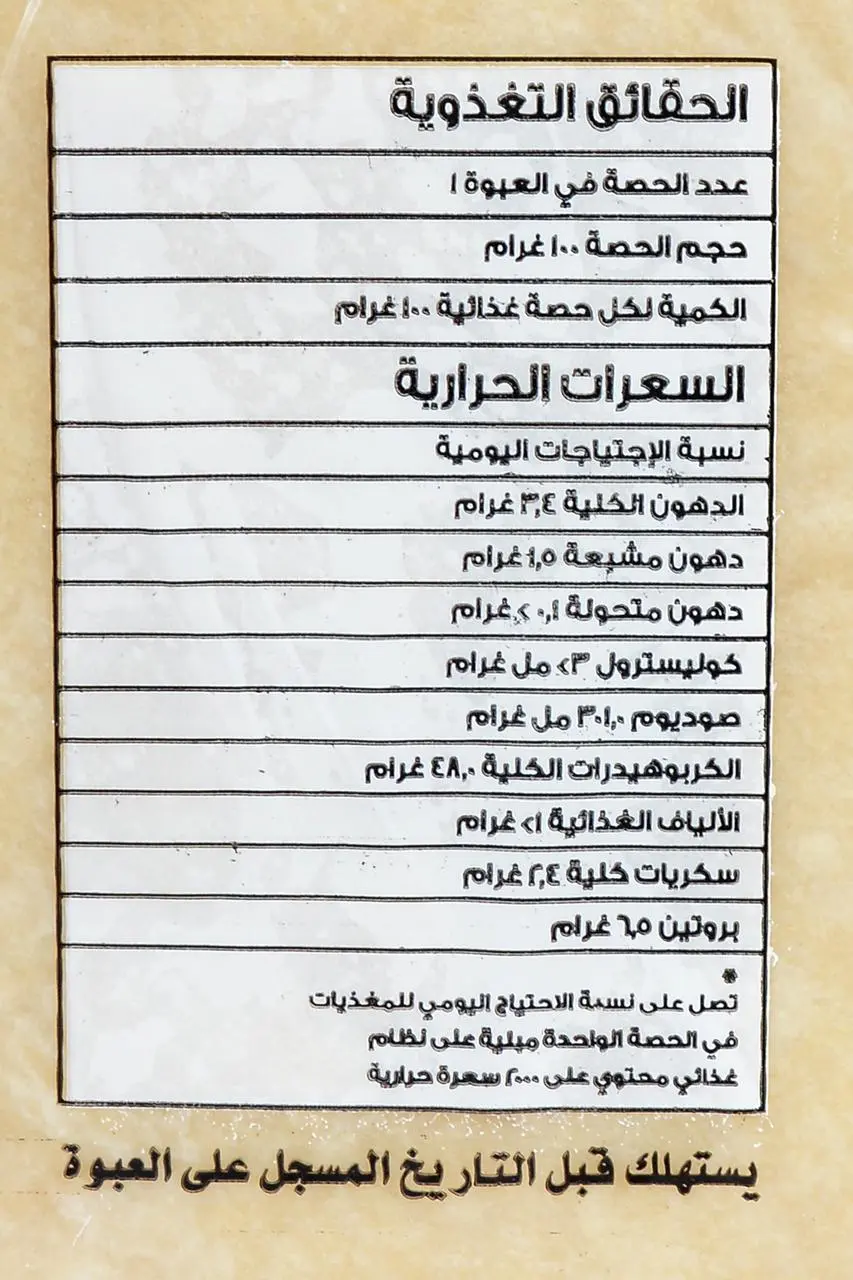 الحقائق التغذوية
عدد الحصة في العبوة ١
حجم الحصة ١٠٠ غرام
الكمية لكل حصة غذائية ١٠٠ غرام
السعرات الحرارية
نسبة الإجتياجات اليومية
الدهون الكلية ٣,٤ غرام
دهون مشبعة ١,٥ غرام
دهون متحولة ٠,١ > غرام
كوليسترول ٣> مل غرام
صوديوم ٣٠١,٠ مل غرام
الكربوهيدرات الكلية ٤٨,٠ غرام
الألياف الغذائية ١> غرام
سكريات كلية ٢,٤ غرام
بروتين ٦,٥ غرام
*
تصل على نسبة الاحتياج اليومي للمغذيات
في الحصة الواحدة مبلية على نظام
غذائي محتوي على ٢٠٠٠ سعرة حرارية
يستهلك قبل التاريخ المسجل على العبوة